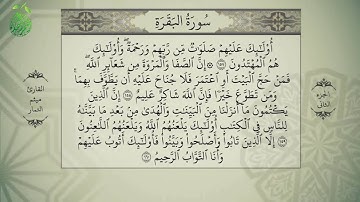 سُورَةُ البَقَرَةِ
أُوْلَٰٓئِكَ عَلَيْهِمْ صَلَوَٰتٌ مِّن رَّبِّهِمْ وَرَحْمَةٌ ۖ وَأُوْلَٰٓئِكَ
هُمُ ٱلْمُهْتَدُونَ ١٥٧ إِنَّ ٱلصَّفَا وَٱلْمَرْوَةَ مِن شَعَآئِرِ ٱللَّهِ ۖ
فَمَنْ حَجَّ ٱلْبَيْتَ أَوِ ٱعْتَمَرَ فَلَا جُنَاحَ عَلَيْهِ أَن يَطَّوَّفَ بِهِمَا ۚ
وَمَن تَطَوَّعَ خَيْرًا فَإِنَّ ٱللَّهَ شَاكِرٌ عَلِيمٌ ١٥٨ إِنَّ ٱلَّذِينَ
يَكْتُمُونَ مَآ أَنزَلْنَا مِنَ ٱلْبَيِّنَٰتِ وَٱلْهُدَىٰ مِنۢ بَعْدِ مَا بَيَّنَّٰهُ
لِلنَّاسِ فِي ٱلْكِتَٰبِ أُوْلَٰٓئِكَ يَلْعَنُهُمُ ٱللَّهُ وَيَلْعَنُهُمُ ٱللَّٰعِنُونَ
١٥٩ إِلَّا ٱلَّذِينَ تَابُوا۟ وَأَصْلَحُوا۟ وَبَيَّنُوا۟ فَأُوْلَٰٓئِكَ أَتُوبُ عَلَيْهِمْ
وَأَنَا ٱلتَّوَّابُ ٱلرَّحِيمُ ١٦٠
الجزء
الثاني
القارئ
ميثم
التمار